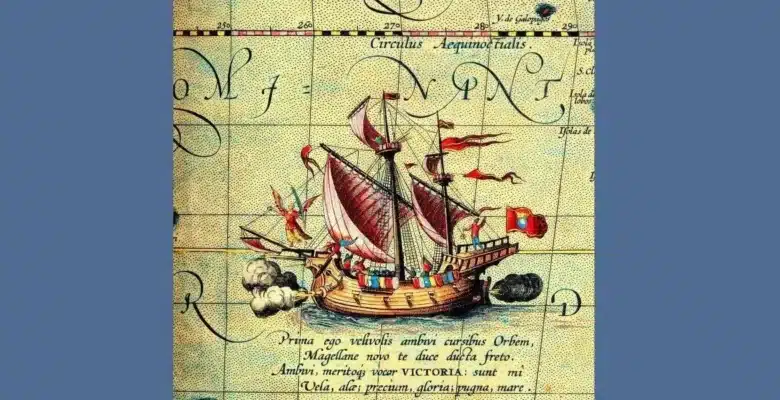 Y. de Galopegos
250 260 270 280 290
Circulus Aequinoctialis.
Isola
S. Cl
OMI= NANT,
Isola de
lobos
Isolas de
R D
Prima ego velivolis ambivi cursibus Orbem,
Magellane novo te duce ducta freto.
Ambivi, meritoq; vocor VICTORIA: sunt mî
Vela, alæ; precium, gloria; pugna, mare.